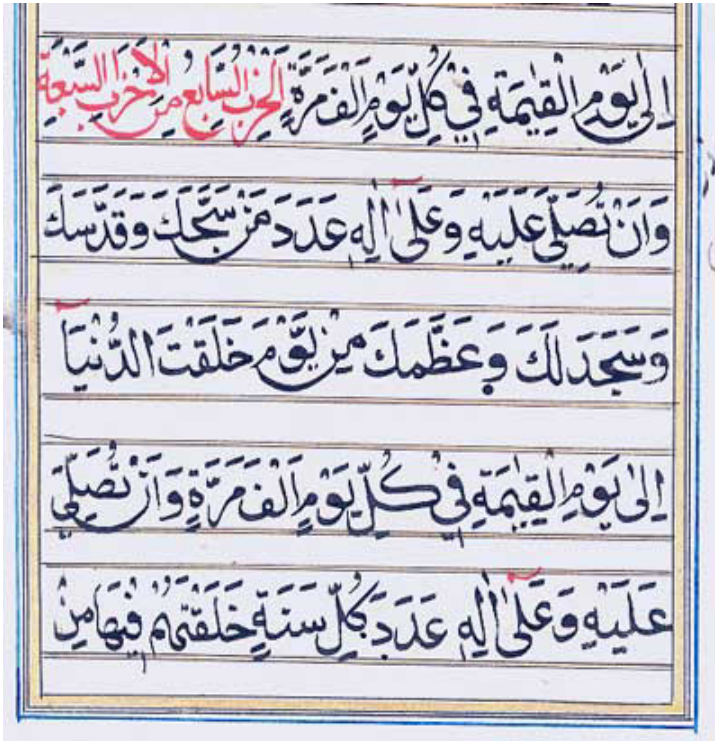 اِلٰى يَوْمِ الْقِيٰمَةِ فِيْ كُلِّ يَوْمٍ اَلْفَ مَرَّةٍ اَلْحِزْبُ السَّابِعُ مِنَ الْاَحْزَابِ السَّبْعَةِ
وَاَنْ تُصَلِّيَ عَلَيْهِ وَعَلٰى اٰلِهٖ عَدَدَ مَنْ سَبَّحَكَ وَقَدَّسَكَ
وَسَجَدَ لَكَ وَعَظَّمَكَ مِنْ يَوْمِ خَلَقْتَ الدُّنْيَا
اِلٰى يَوْمِ الْقِيٰمَةِ فِيْ كُلِّ يَوْمٍ اَلْفَ مَرَّةٍ وَاَنْ تُصَلِّيَ
عَلَيْهِ وَعَلٰى اٰلِهٖ عَدَدَ كُلِّ سَنَةٍ خَلَقْتَهُمْ فِيْهَا مِنْ